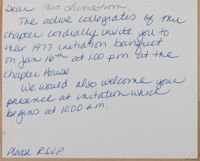 Dear Mrs Lundstrom,
The active collegiates of our
chapter cordially invite you to
their 1977 initiation banquet
on Jan 16th at 1:00 p.m. at the
chapter House
We would also welcome your
presence at initiation which
begins at 10:00 a.m.
Please R.S.V.P.